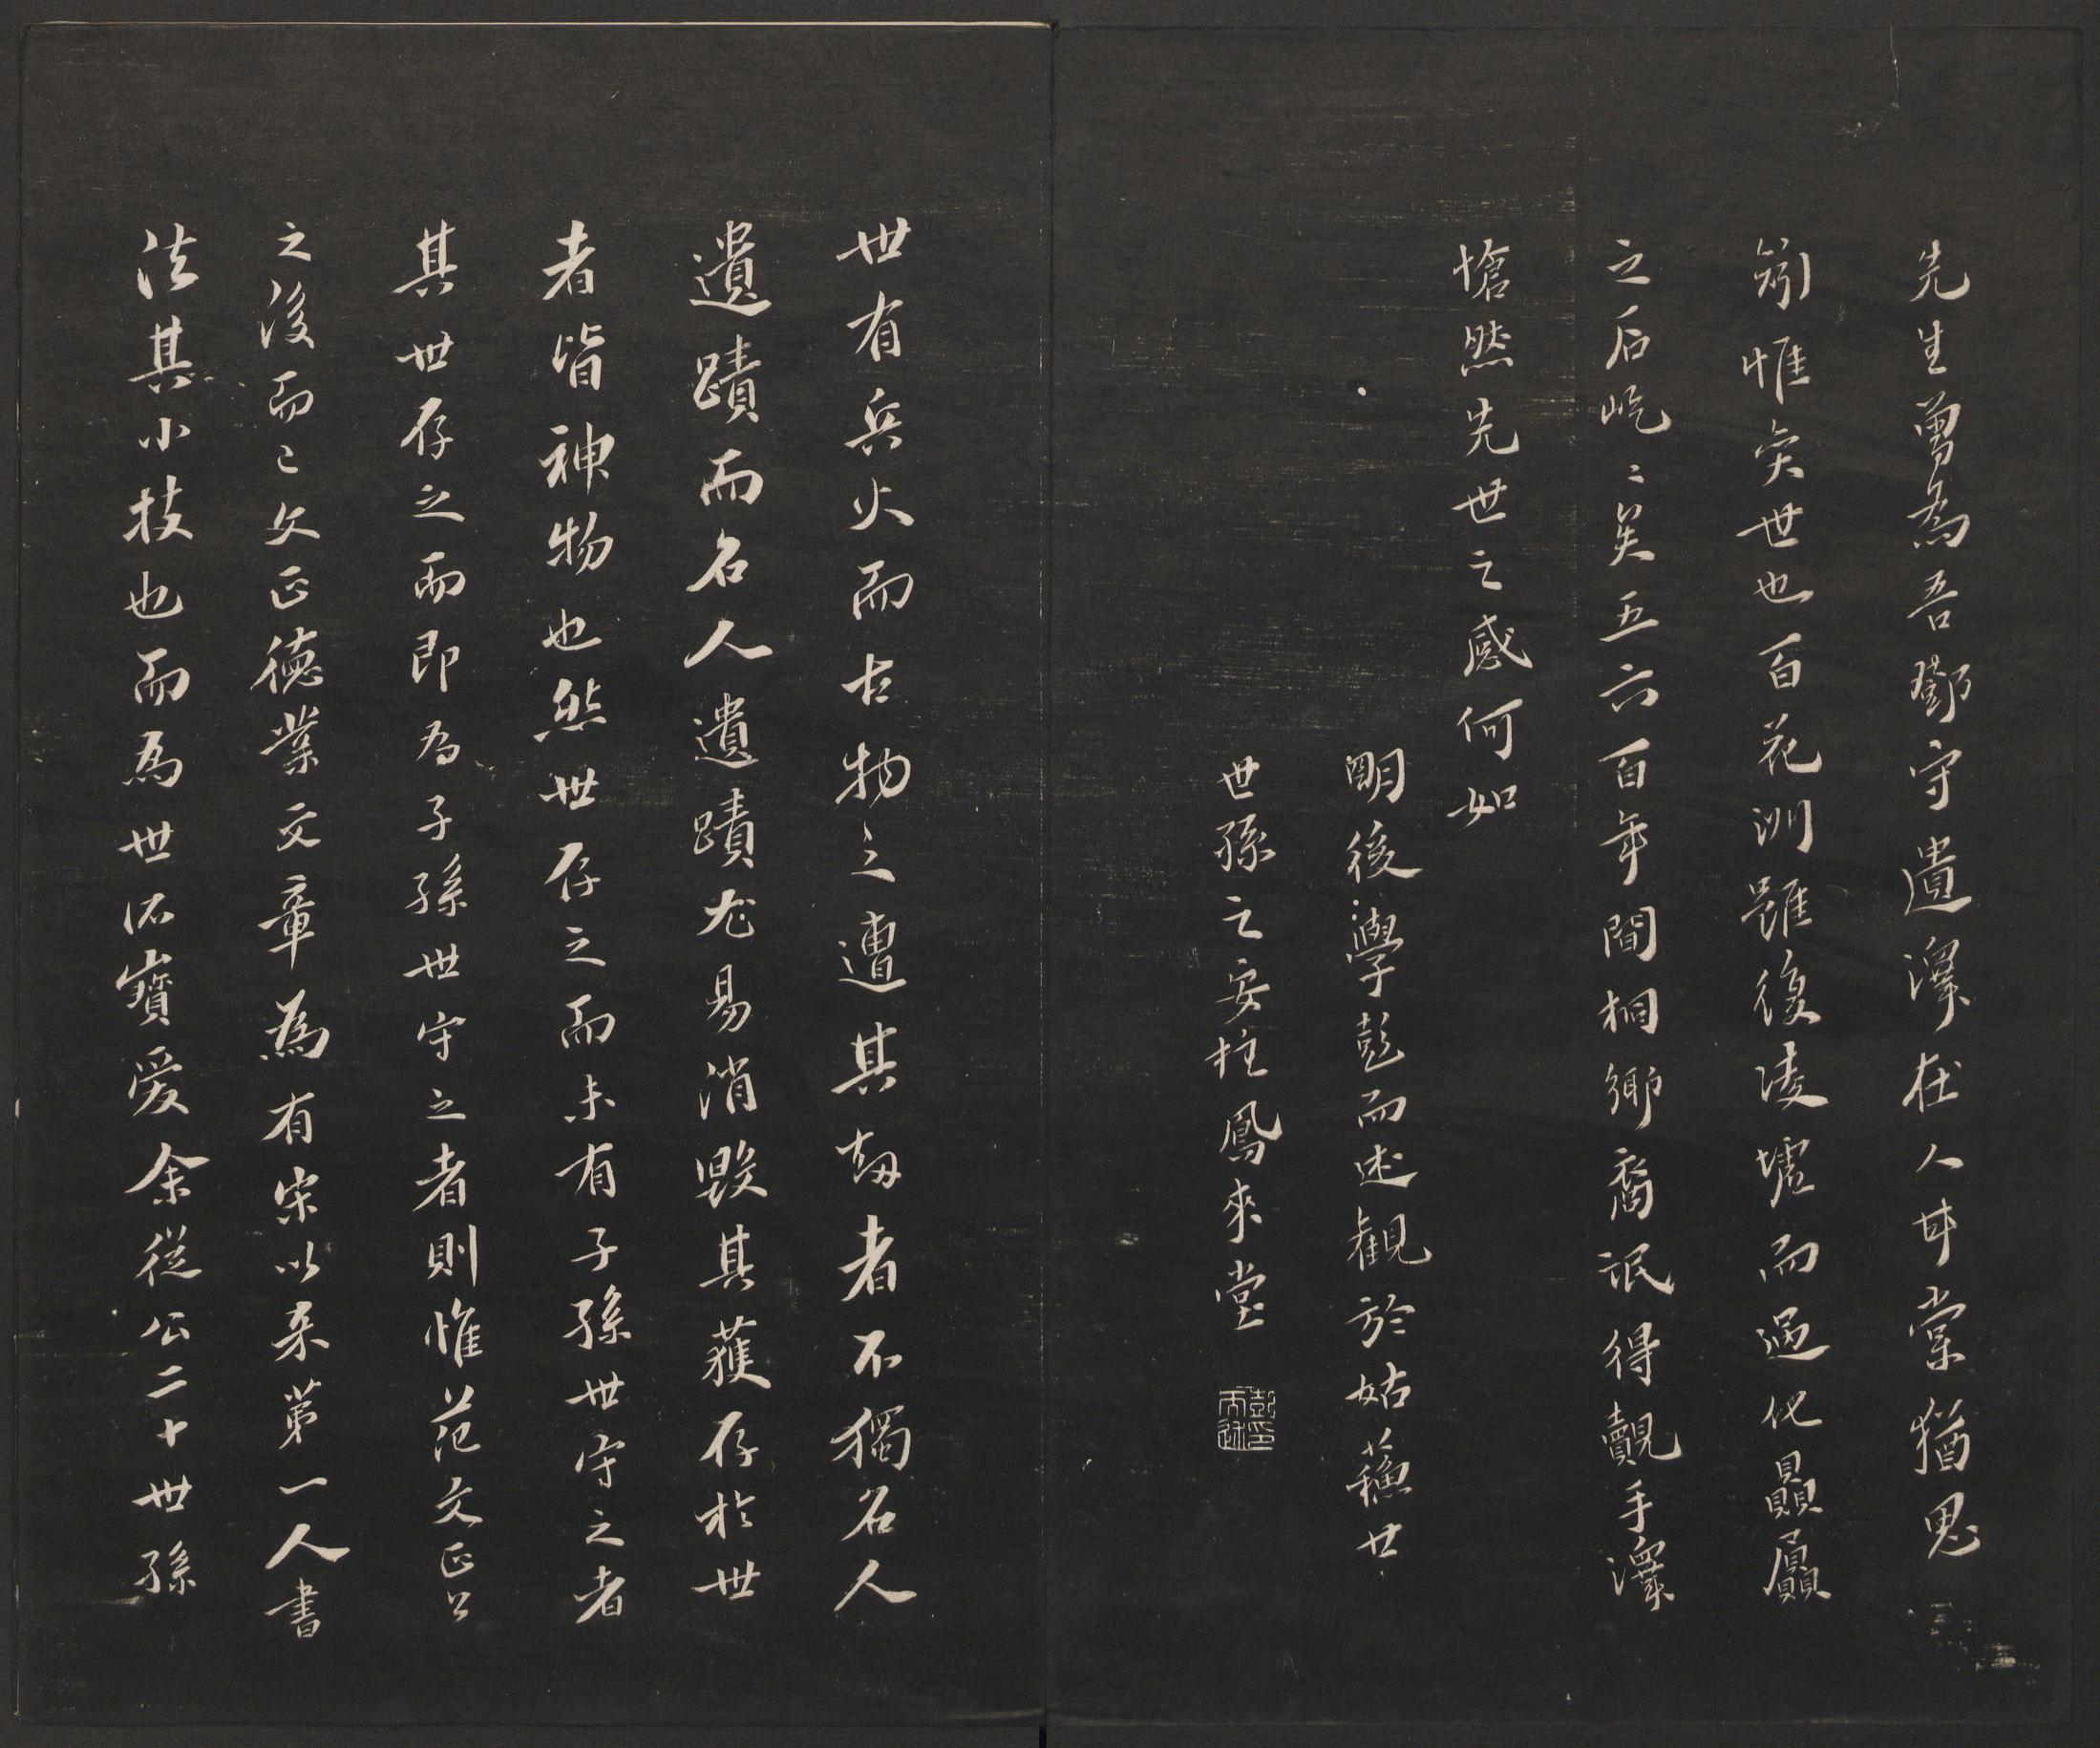 先生曾為吾鄧守遺澤在人甘棠猶思
矧惟奕世也百花洲雖復淩墟而過化贔屭
之后屹〻矣五六百年間桐鄉裔氓得覿手澤
愴然先世之感何如
明後學彭而述觀於姑蘇廿
世孫之安柱鳳來堂
世有兵火而古物之遭其劫者不獨名人
遺蹟而名人遺蹟尤易消毀其獲存於世
者皆神物也然世存之而未有子孫世守之者
其世存之而即為子孫世守之者則惟范文正公
之後而已文正德業文章為有宋以來第一人書
法其小技也而為世所寶愛余從公二十世孫